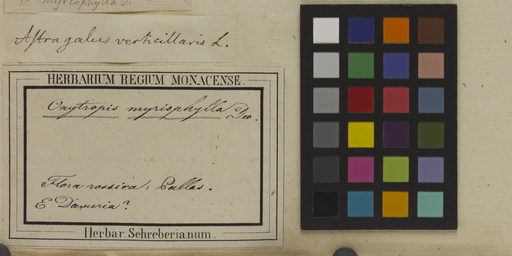 myriophylla
Astragalus verticillaris L.
HERBARIUM REGIUM MONACENSE.
Oxytropis myriophylla
Flora rossica. Pallas.
E Davuria?
Herbar Schreberianum.